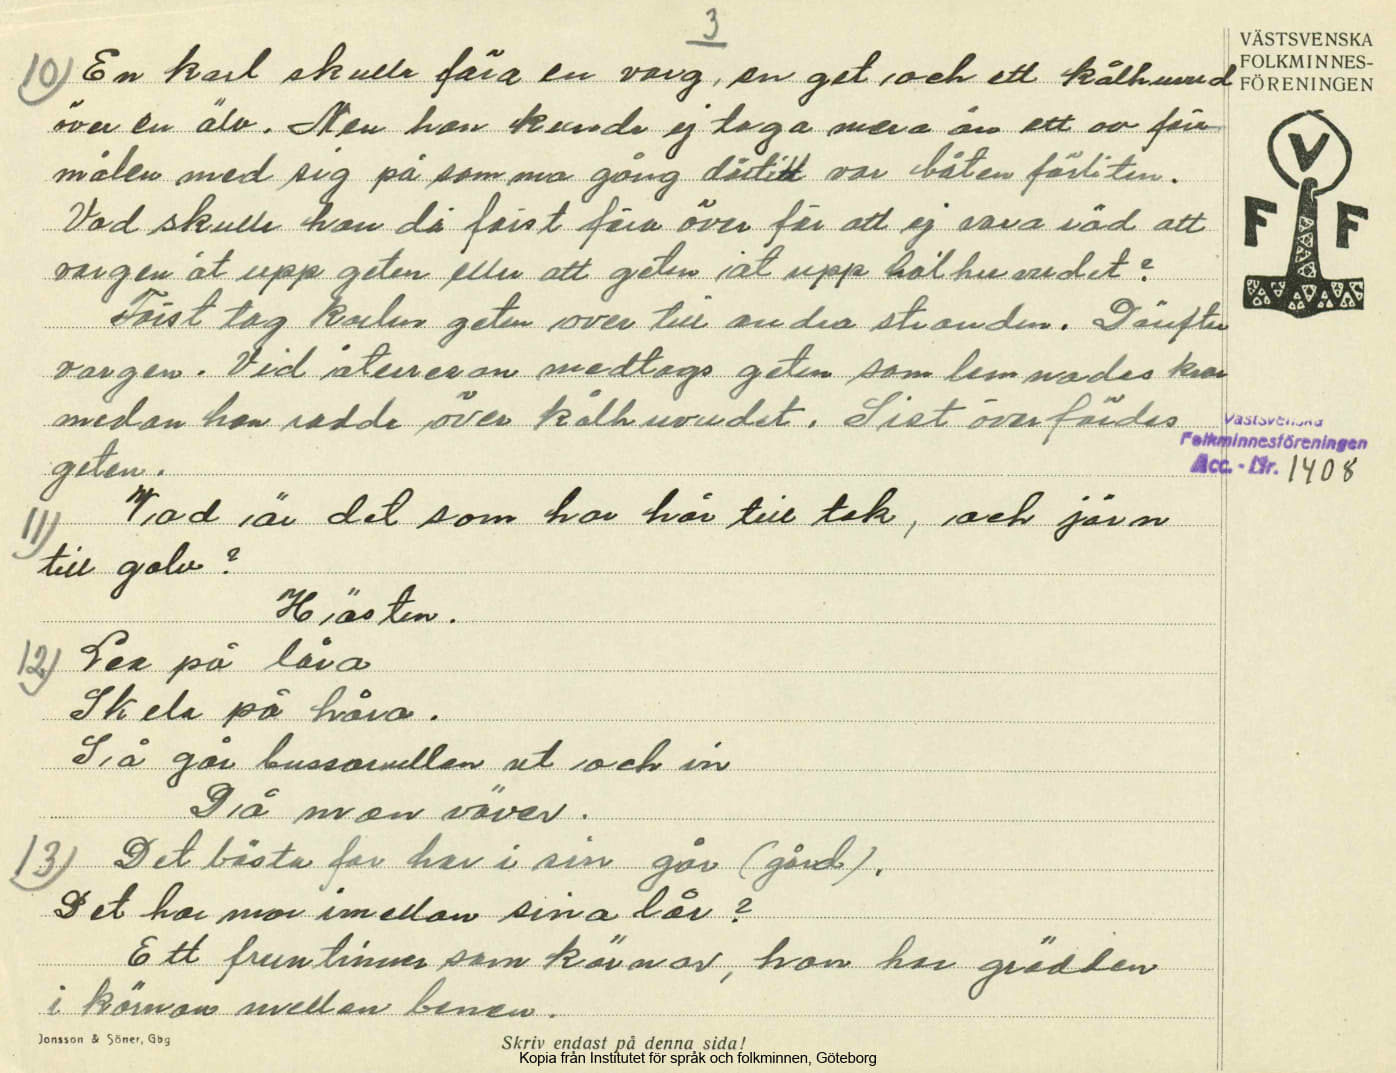 3
10) En karl skulle föra en varg, en get, och ett kålhuvud
över en älv. Men han kunde ej taga mera än ett av före
målen med sig på samma gång därtill var båten förliten.
Vad skulle han då först föra över för att ej vara rädd att
vargen åt upp geten eller att geten åt upp kålhuvudet?
Först tog karlen geten över till andra stranden. Därefter
vargen. Vid återresan medtogs geten som lemnades kvar
medan han rodde över kålhuvudet. Sist överfördes
geten.
11) Vad är det som har hår till tak, och järn
till golv?
Hästen.
12) på låra
Skela på håra.
Så går bussarullen ut och in
Då man väver.
13) Det bästa far har i sin går (gård).
Det har mor imellan sina lår?
Ett fruntimmer som kärnar, hon har grädden
i kärnan mellan benen.
VÄSTSVENSKA
FOLKMINNES-
FÖRENINGEN
V
F F
Västsvenska
Folkminnesföreningen
Acc. - Nr. 1408
Jonsson & Söner, Gbg
Skriv endast på denna sida!
Kopia från Institutet för språk och folkminnen, Göteborg